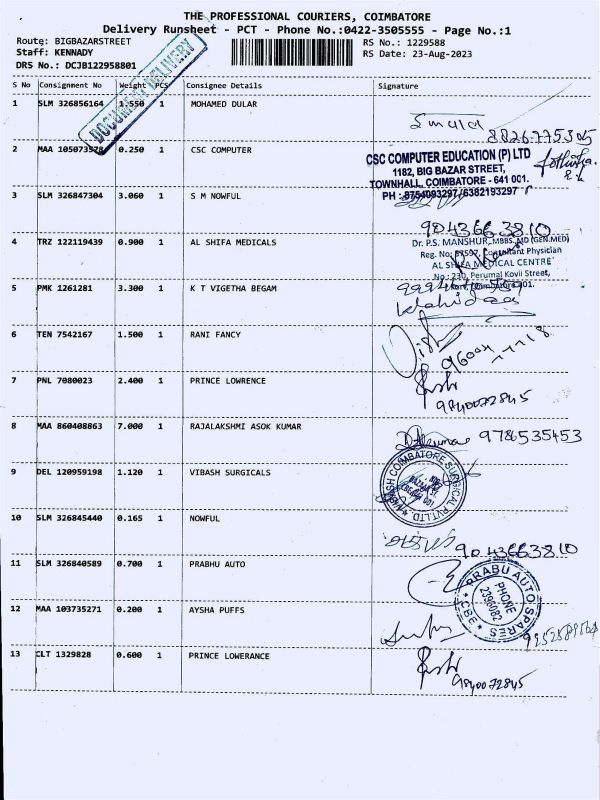 THE PROFESSIONAL COURIERS, COIMBATORE
Delivery Runsheet - PCT - Phone No.:0422-3505555 - Page No.:1
Route: BIGBAZARSTREET
RS No.: 1229588
Staff: KENNADY
RS Date: 23-Aug-2023
DRS No.: DCJB122958801
DOCUMENT DELIVERY
S No Consignment No Weight PCS Consignee Details Signature
1 SLM 326856164 1.550 1 MOHAMED DULAR
8826775305
2 MAA 105073578 0.250 1 CSC COMPUTER
CSC COMPUTER EDUCATION (P) LTD
1182, BIG BAZAR STREET,
TOWNHALL, COIMBATORE - 641 001.
PH : 8754093297/6382193297
3 SLM 326847304 3.060 1 S M NOWFUL
9043663810
4 TRZ 122119439 0.900 1 AL SHIFA MEDICALS
Dr. P.S. MANSHUR, MBBS, MD (GEN.MED)
Reg. No: Consultant Physician
AL SHIFA MEDICAL CENTRE
No: 230, Perumal Kovil Street,
5 PMK 1261281 3.300 1 K T VIGETHA BEGAM
6 TEN 7542167 1.500 1 RANI FANCY
7 PNL 7080023 2.400 1 PRINCE LOWRENCE
9840072845
8 MAA 860408863 7.000 1 RAJALAKSHMI ASOK KUMAR
9786535453
9 DEL 120959198 1.120 1 VIBASH SURGICALS
COIMBATORE SURGICAL PVT.LTD.
10 SLM 326845440 0.165 1 NOWFUL
9043663810
11 SLM 326840589 0.700 1 PRABHU AUTO
PRABU AUTO SPARES
* CBE *
PHONE
2396082
12 MAA 103735271 0.200 1 AYSHA PUFFS
13 CLT 1329828 0.600 1 PRINCE LOWERANCE
9840072845